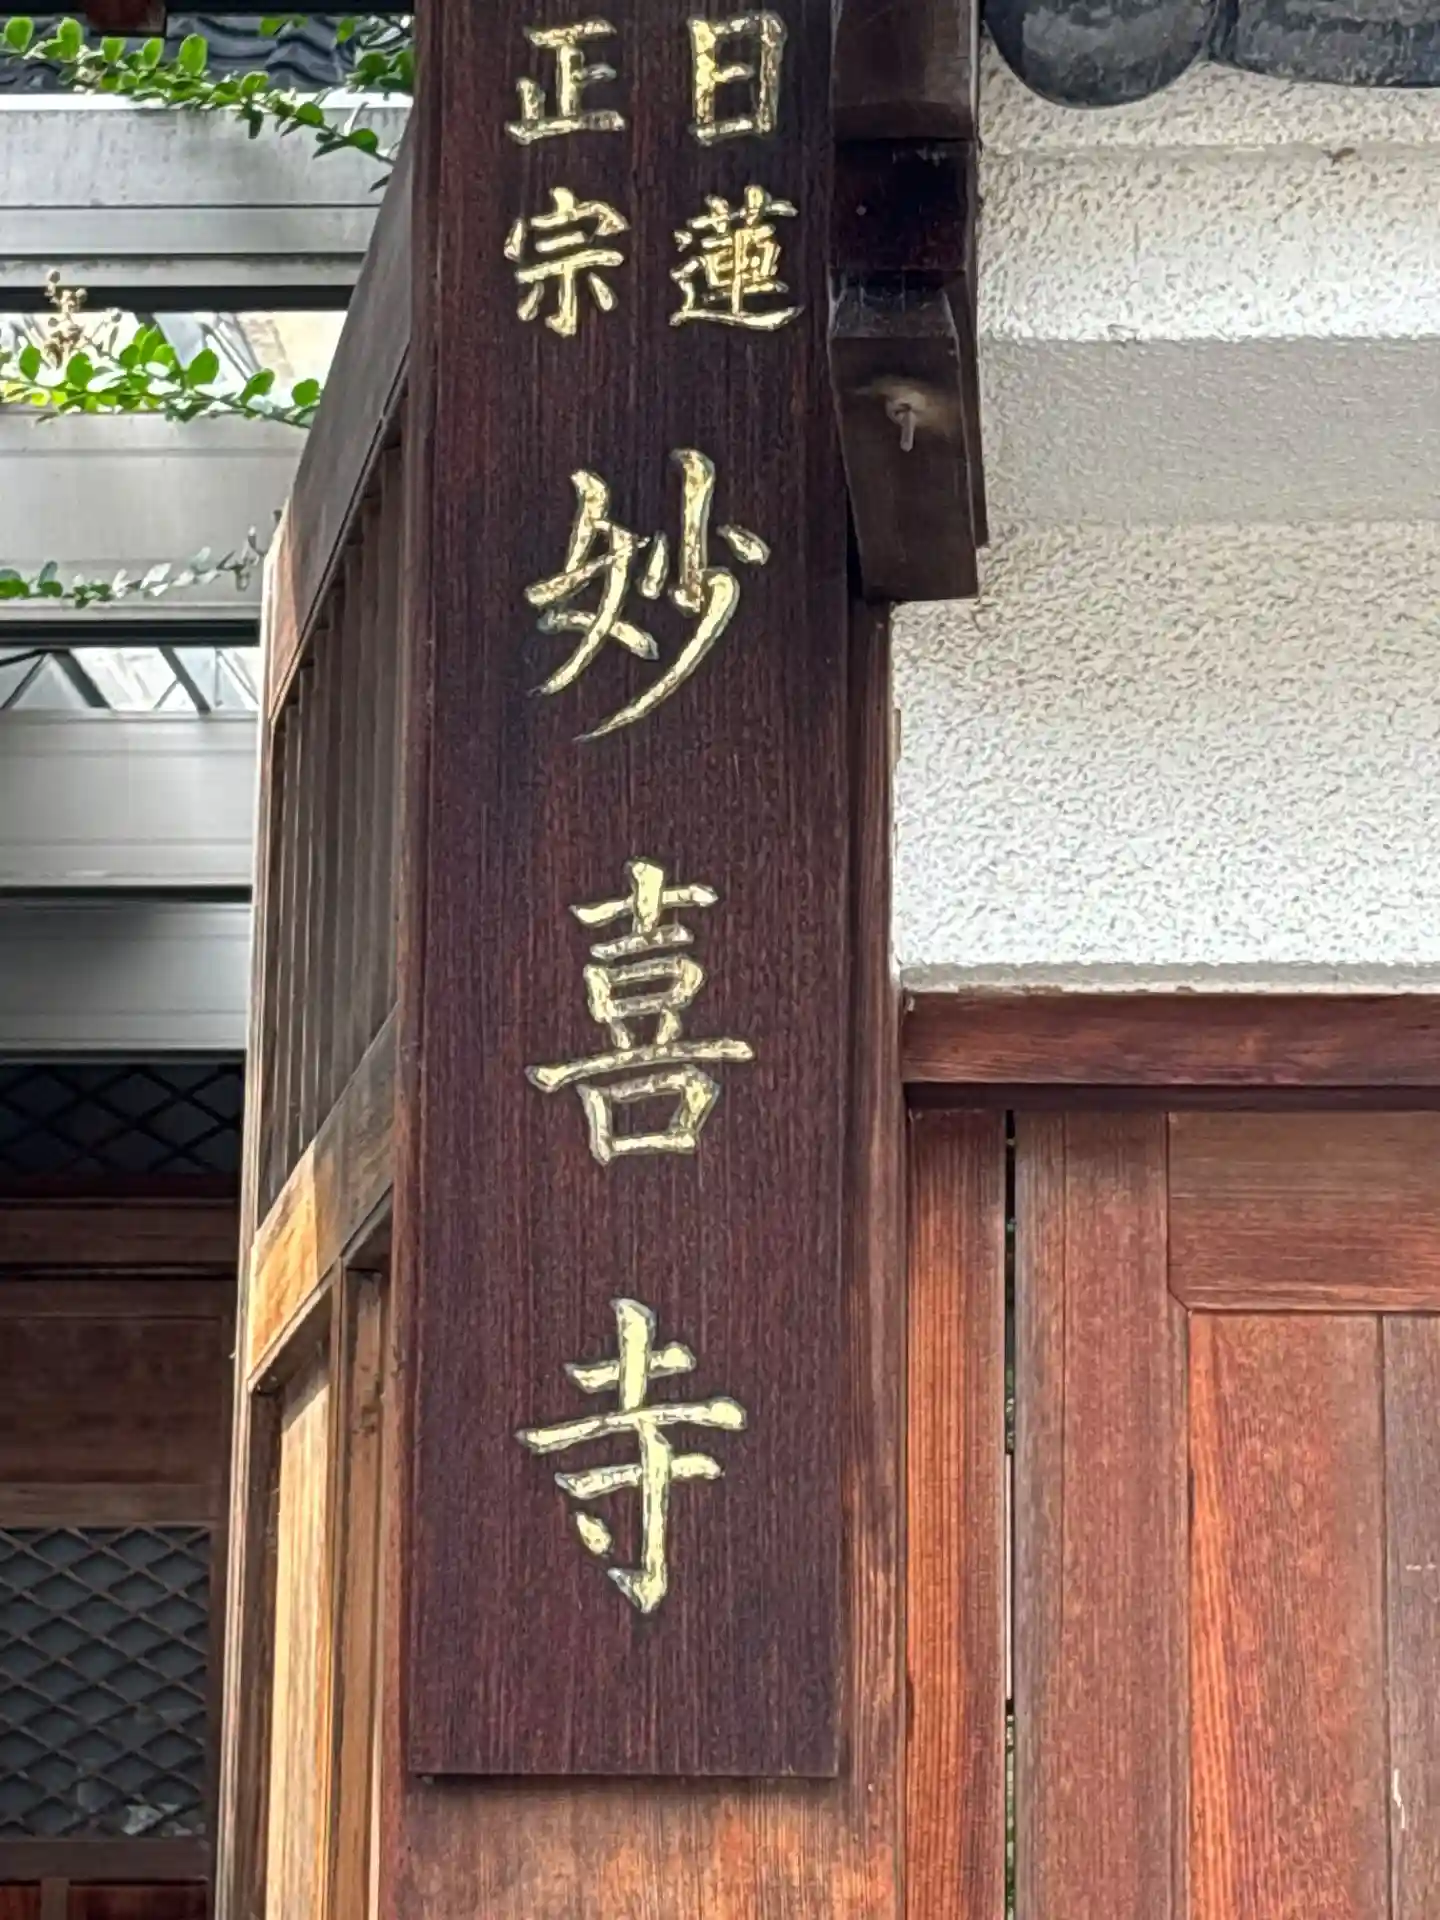 日蓮
正宗
妙喜寺